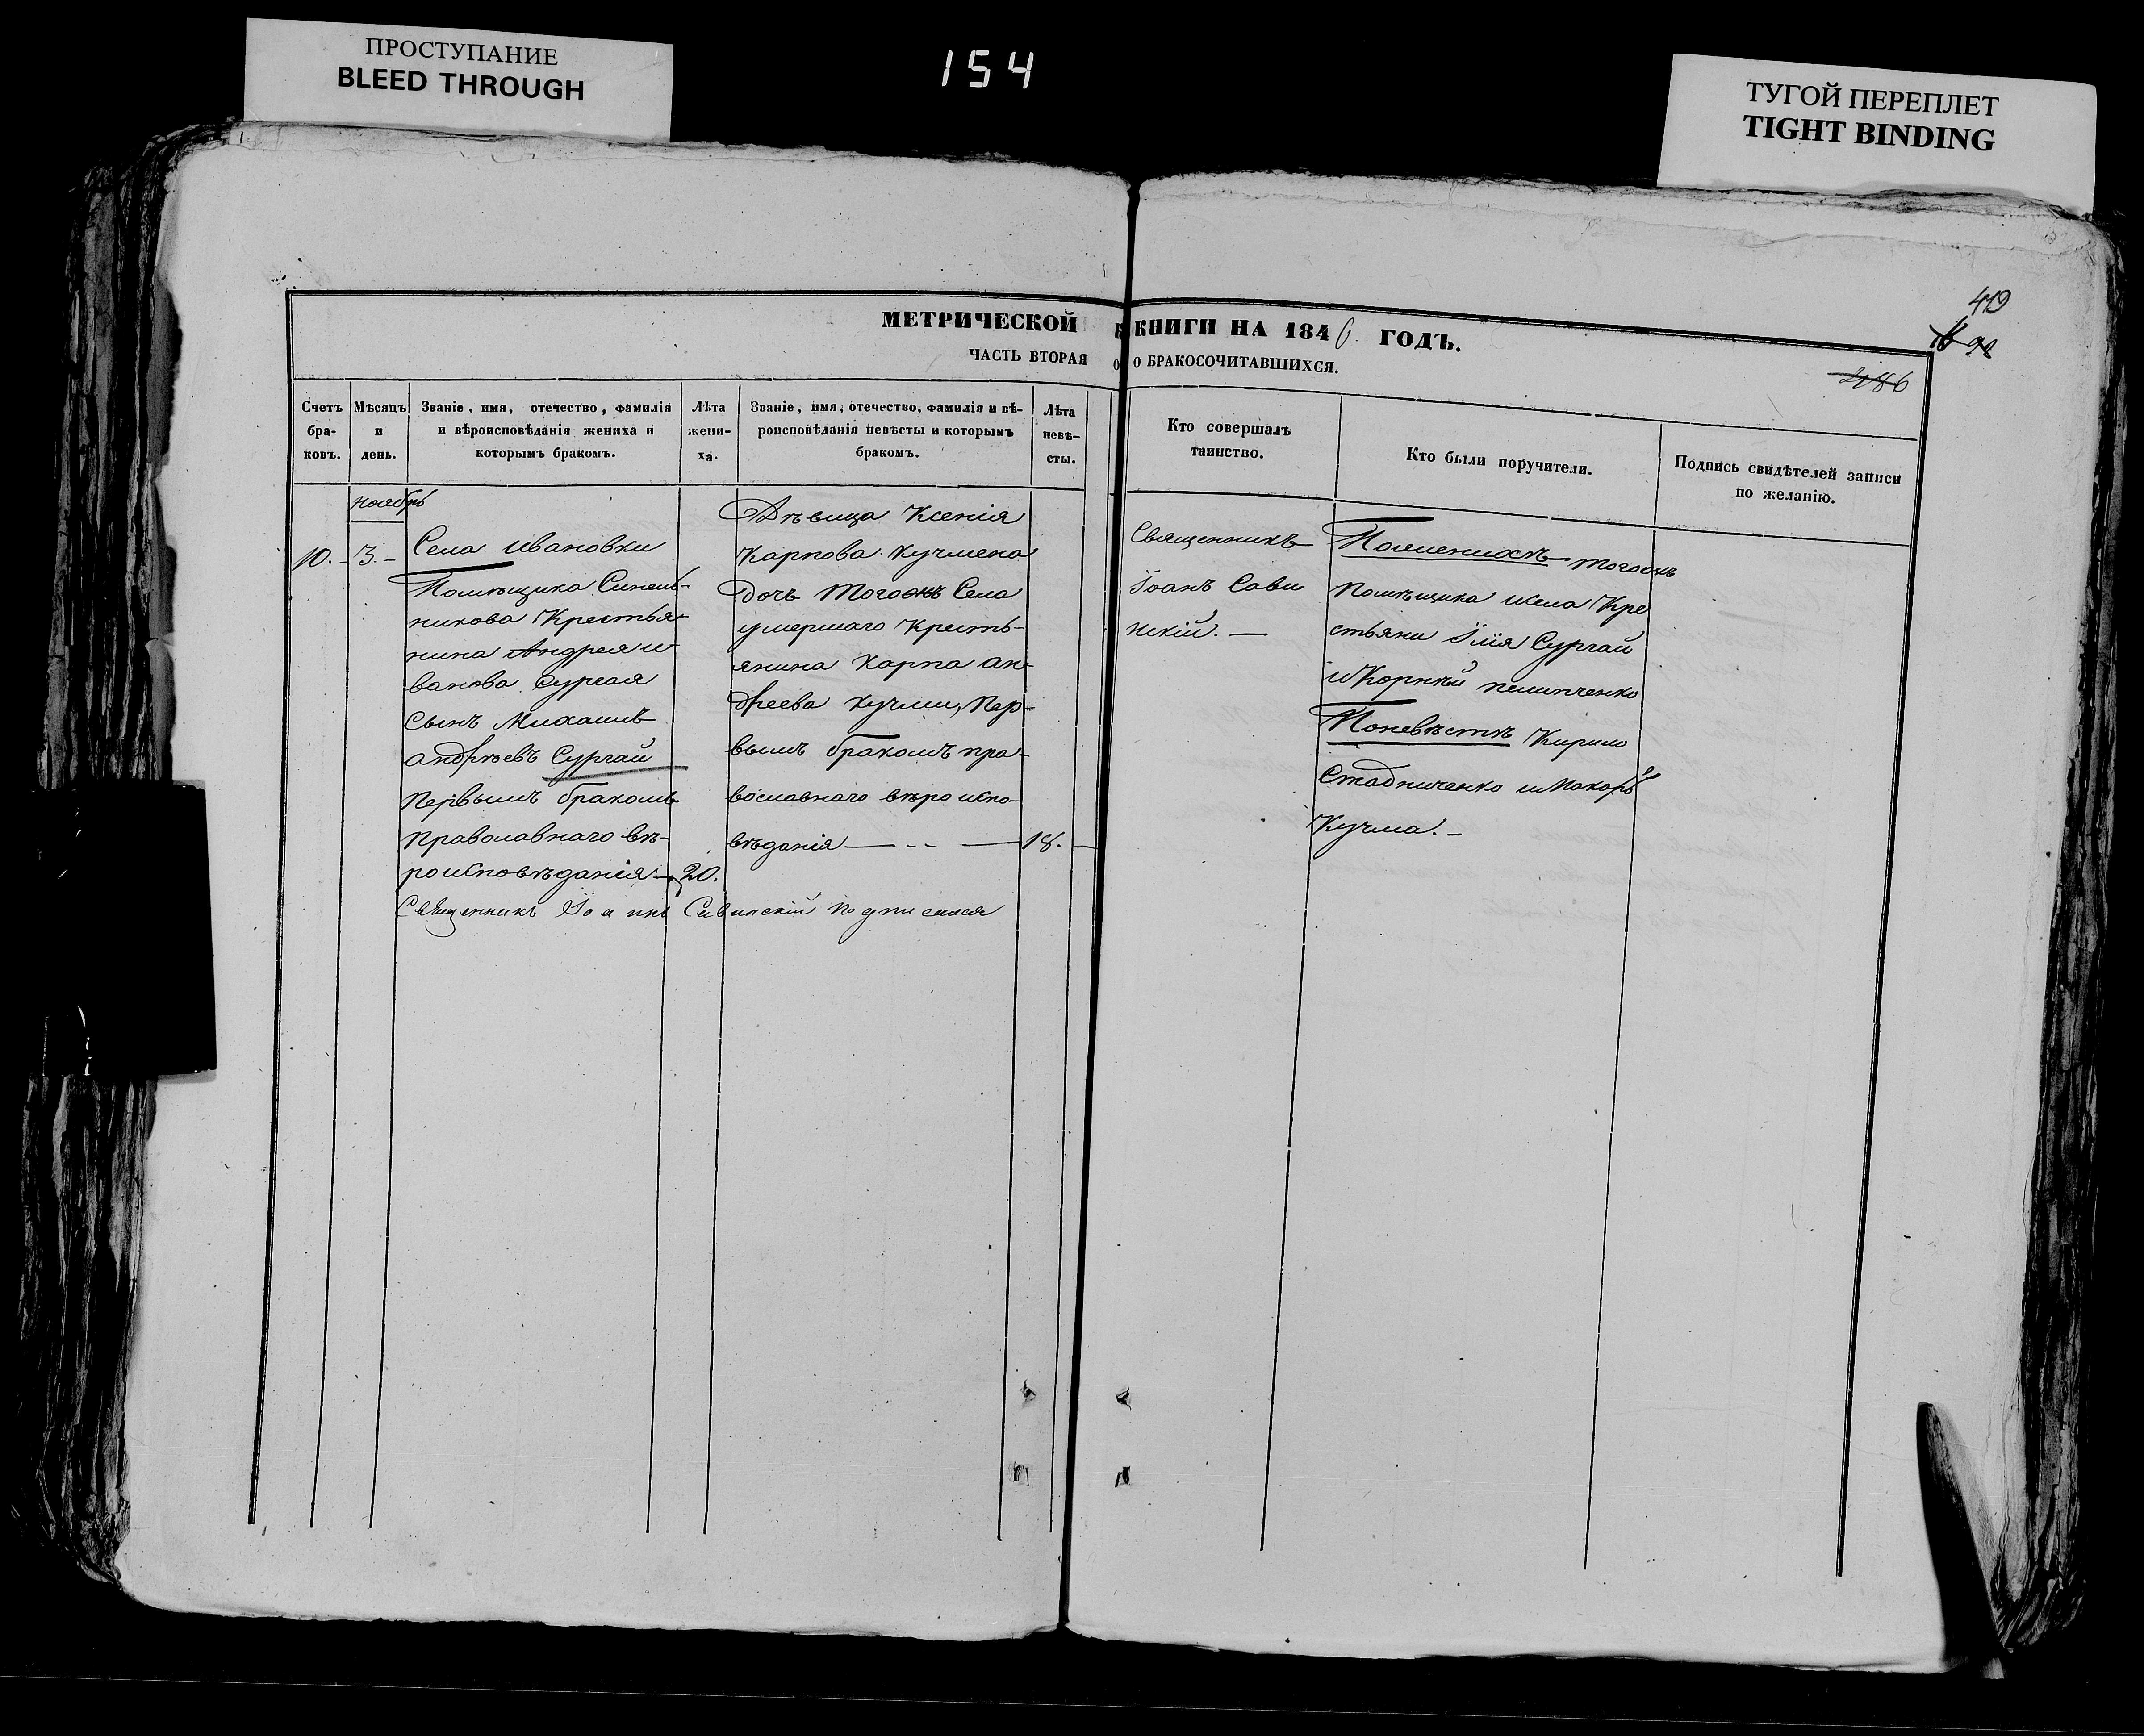 ПРОСТУПАНИЕ
BLEED THROUGH
154
ТУГОЙ ПЕРЕПЛЕТ
TIGHT BINDING
419
2186
МЕТРИЧЕСКОЙ КНИГИ НА 1846 ГОДЪ.
ЧАСТЬ ВТОРАЯ О БРАКОСОЧИТАВШИХСЯ.
Счетъ
бра-
ковъ.
Мѣсяцъ
и
день.
Званіе, имя, отечество, фамилія
и вѣроисповѣданія жениха и
которымъ бракомъ.
Лѣта
жени-
ха.
Званіе, имя, отечество, фамилія и вѣ-
роисповѣданія невѣсты и которымъ
бракомъ.
Лѣта
невѣ-
сты.
Кто совершалъ
таинство.
Кто были поручители.
Подпись свидѣтелей записи
по желанію.
10.
ноябрь
3.
Села Ивановки
Помѣщика Синель-
никова Крестья-
нина Андрея и
ванова Сургая
Сынъ Михаилъ
андрѣевъ Сургай
первымъ бракомъ
православнаго вѣ-
роисповѣданія —
20.
Дѣвица Ксенія
Карпова Кучмена
дочь тогожъ Села
умершаго Кресть-
янина Карпа ан-
дреева Кучмы, пер-
вымъ бракомъ пра-
вославнаго вѣроиспо-
вѣданія —
18.
Священникъ Іоаннъ Савинскій подписался
Священникъ
Іоанъ Сави
нскій. —
Поженихѣ тогожъ
помѣщика исела Кре
стьяни Ілія Сургай
и Корнѣй пелипченко
Поневѣстѣ Кирило
Стадниченко и Макаръ
Кучма. —